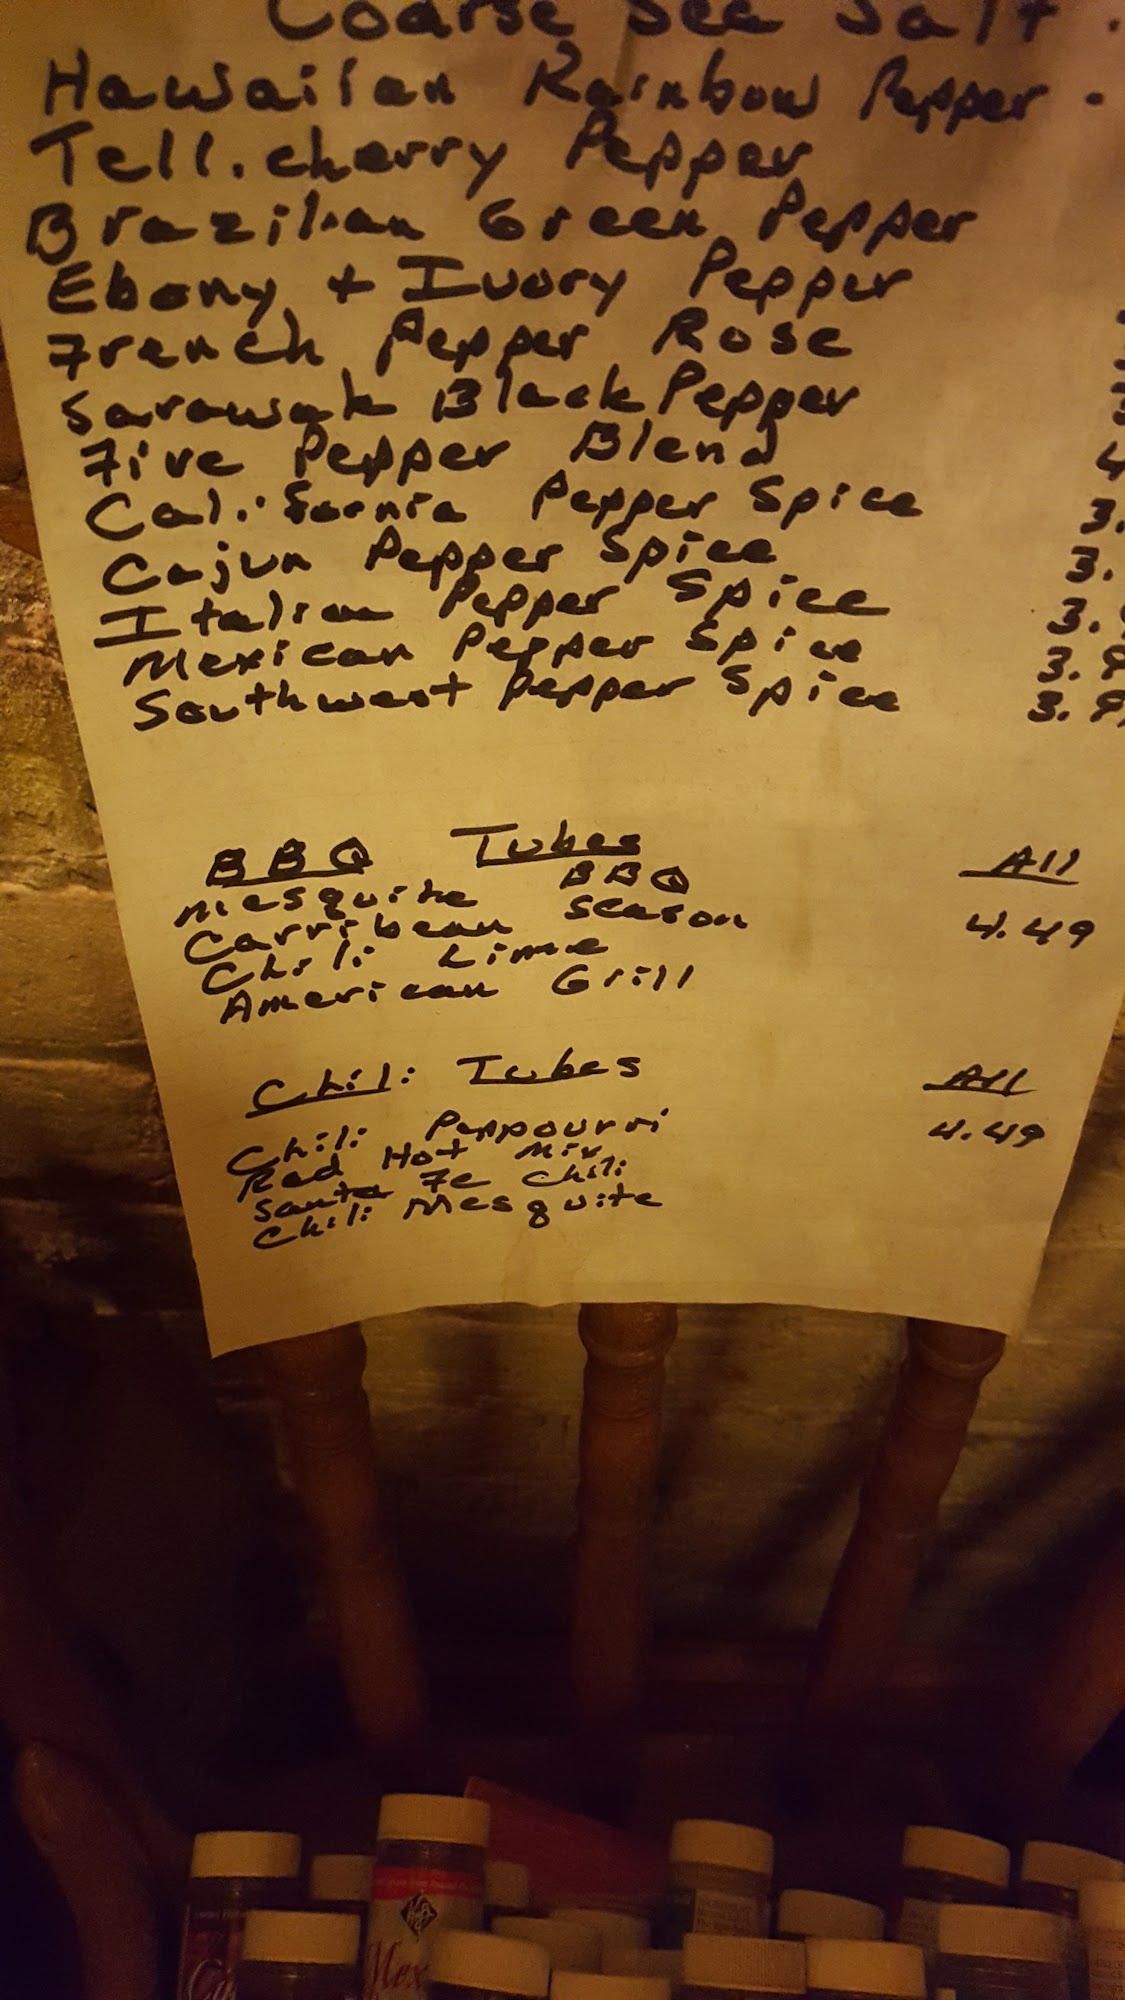 Coarse See Salt .
Hawaiian Rainbow Pepper .
Tell.cherry Pepper
Brazilian Green Pepper
Ebony + Ivory Pepper
French Pepper Rose
Sarawak Black Pepper
Five Pepper Blend 4
California Pepper Spice 3.
Cajun Pepper Spice 3.
Italian Pepper Spice 3.
Mexican Pepper Spice 3.9
Southwest Pepper Spice 3.9
BBQ Tubes All
Mesquite BBQ 4.49
Carribean Season
Chili Lime
American Grill
Chili Tubes All
Chili Peppourri 4.49
Red Hot Mix
Santa Fe Chili
Chili Mesquite
Mex